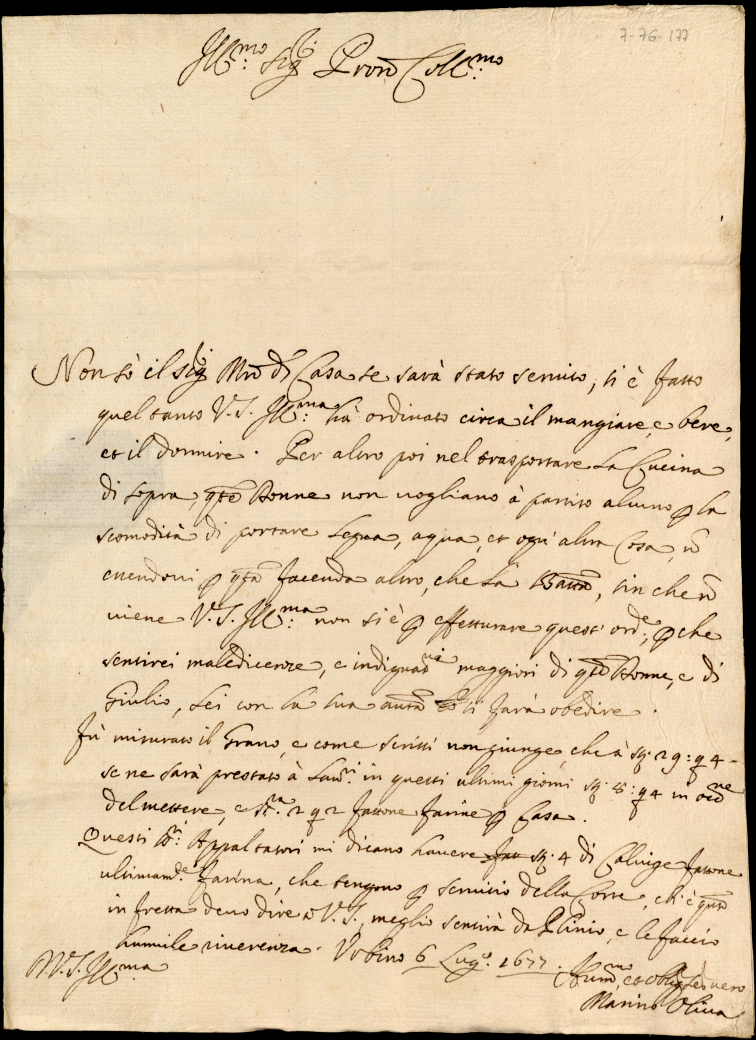 7-76-177
Ill.mo Sig.r Pron Coll.mo
Non sò il Sig.r Mro di Casa se sarà stato seruito, si è fatto
quel tanto V.S. Ill.ma hà ordinato circa il mangiare, e bere,
et il dormire. Per altro poi nel trasportare la Cucina
di sopra, qte Donne non uogliano à partito alcuno p la
scomodità di portare legna, aqua, et ogn' altra Cosa, nõ
essendoui p qta facenda altro, che la, sin che nõ
uiene V.S. Ill.ma non si è p effetturare quest' orde, p che
sentirei maledicenze, e indignat.ni maggiori di qte Donne, e di
Giulio, lei con la sua autà si farà obedire.
Fù misurato il Grano, e come scrissi non giunge, che à st. 29: q 4-
se ne sarà prestato à Lauri in questi ultimi giorni st. 8: q 4 in ordne
del mettere, e st.ra 2 q 2 fattone farine p Casa.
Questi Sri Appaltatori mi dicano hauere st. 4 di Caluige fattone
ultimam.te farina, che tengono p seruitio della Corte, ch' è quto
in fretta deuo dire a V.S., meglio sentirà da Plinio, e le faccio
humile riuerenza. Vrbino 6 Lug.o 1677.
D V.S. Ill.ma
Hum.mo, et Oblig. Seruero
Marino Oliua